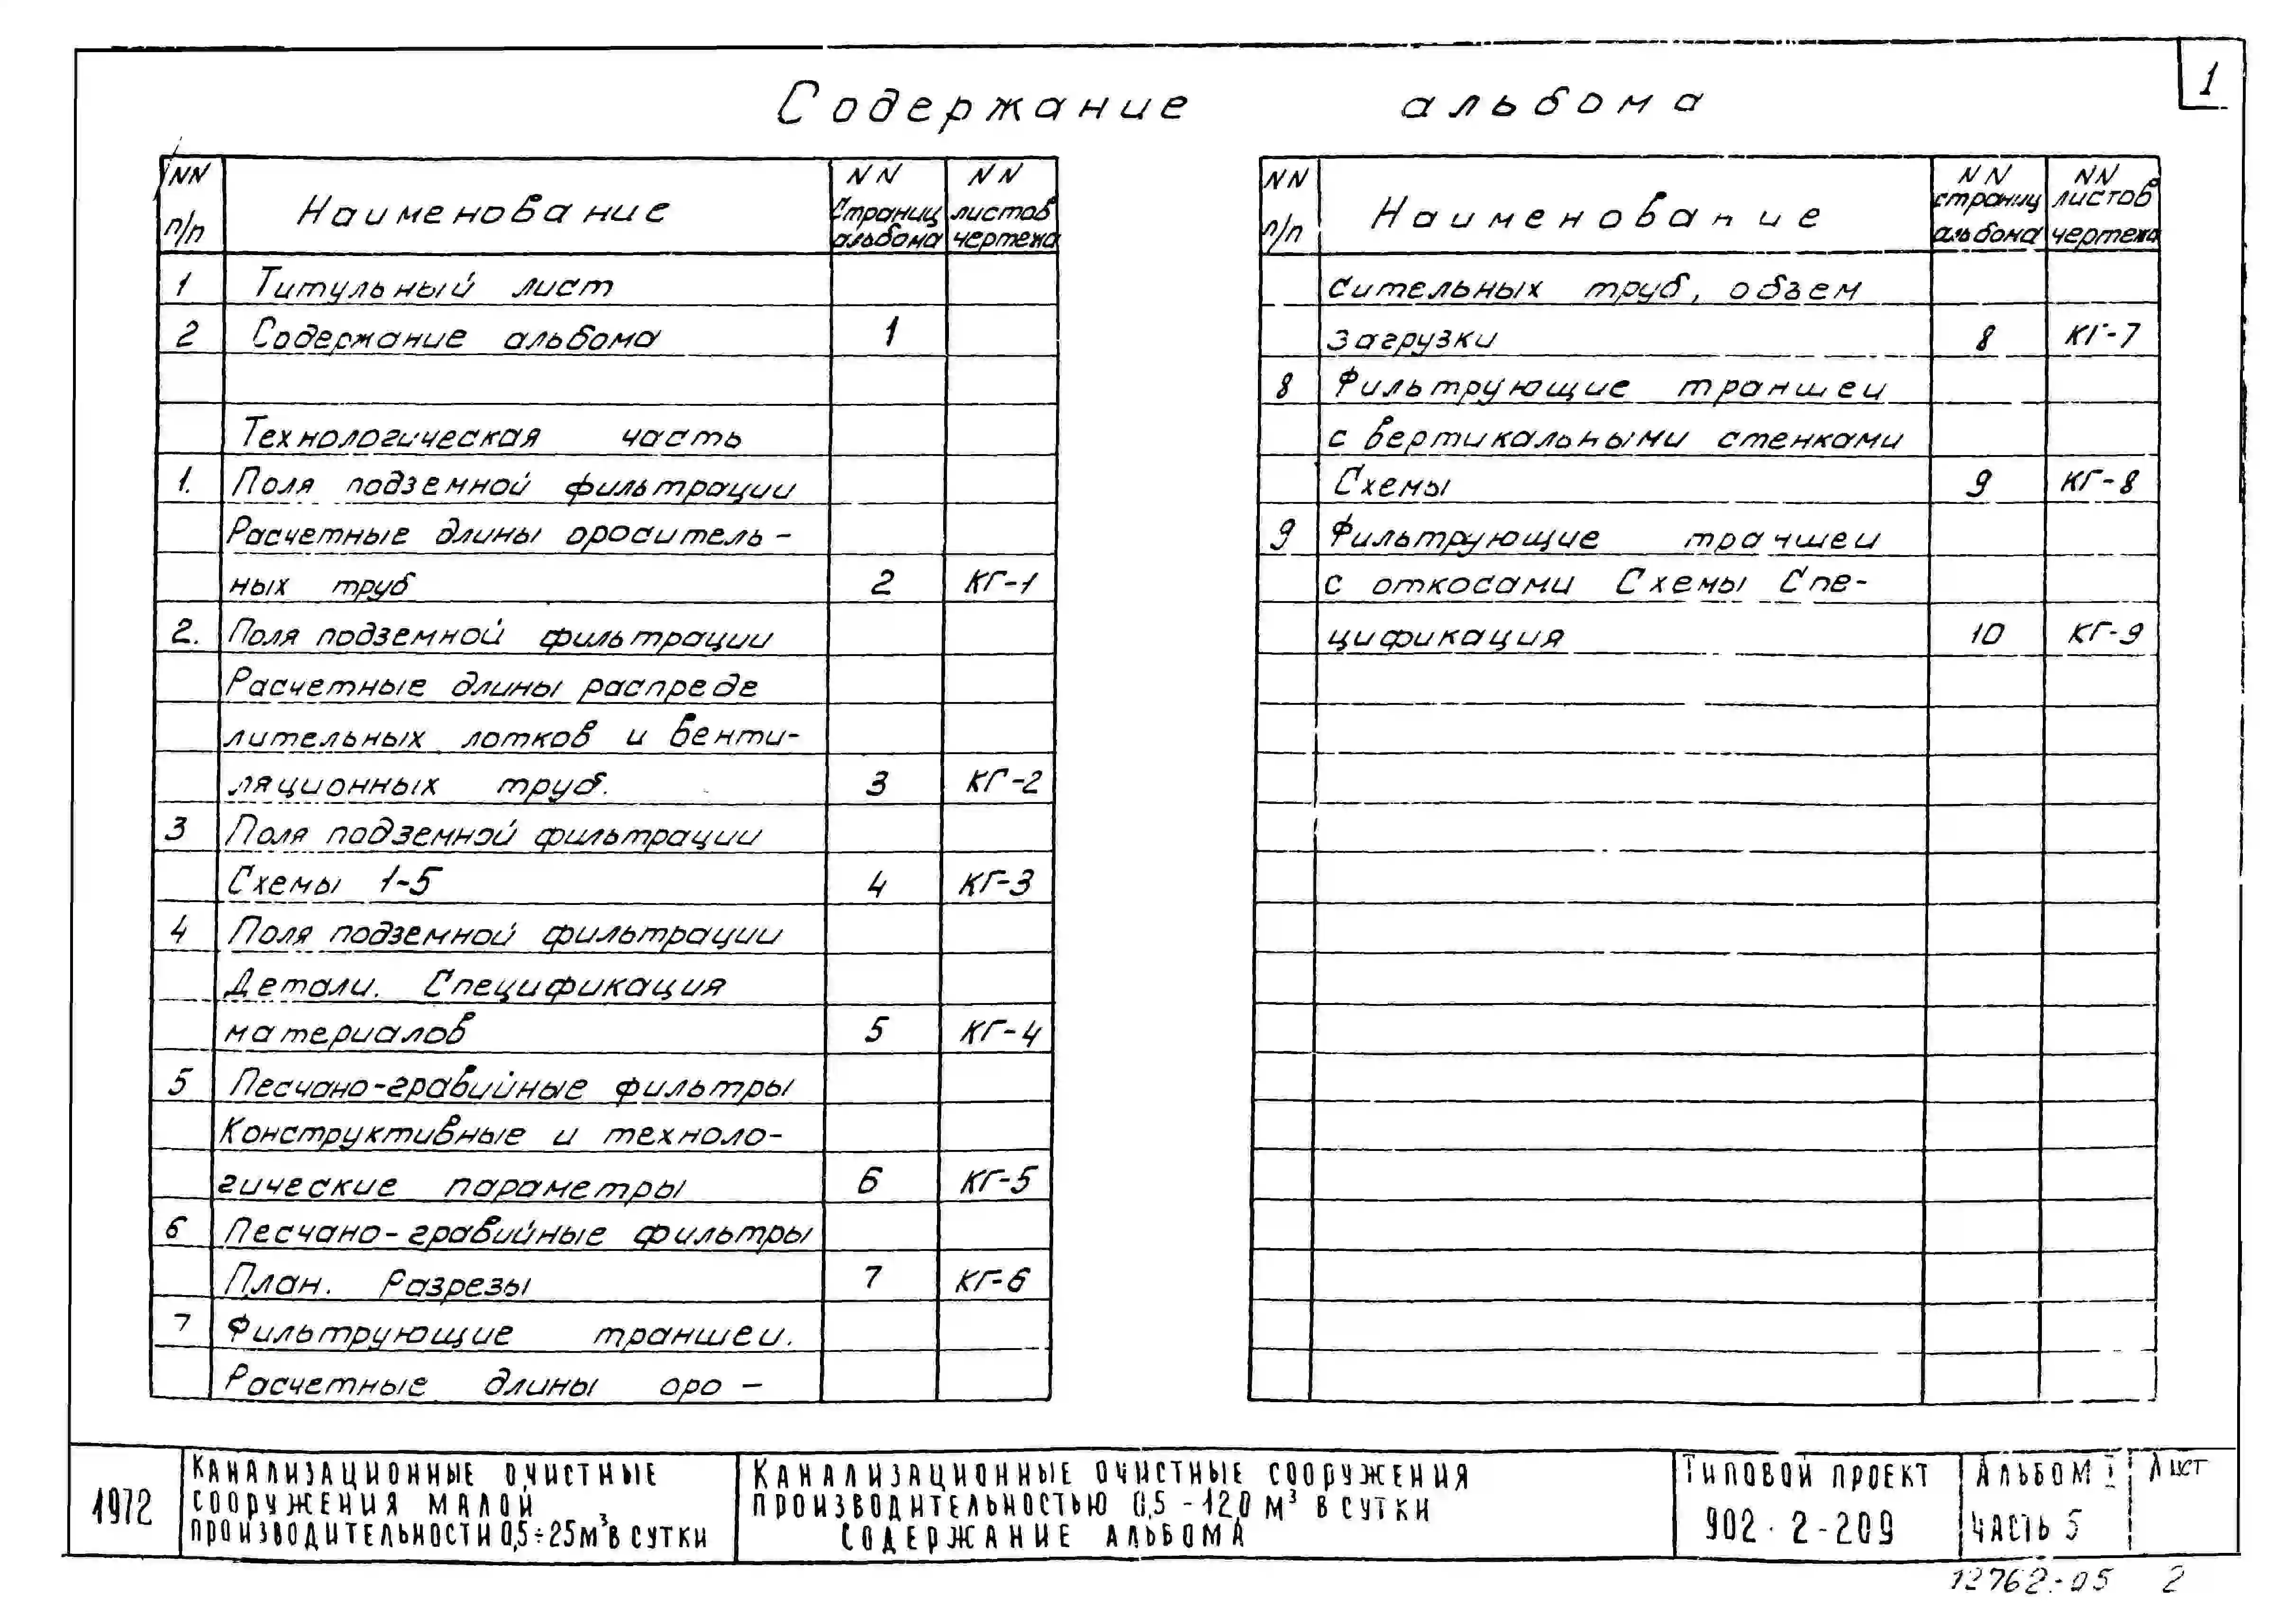 1
Содержание альбома
NN п/п Наименование NN страниц альбома NN листов чертежа
1 Титульный лист
2 Содержание альбома 1
Технологическая часть
1. Поля подземной фильтрации
Расчетные длины ороситель-
ных труб 2 КГ-1
2. Поля подземной фильтрации
Расчетные длины распреде
лительных лотков и венти-
ляционных труб. 3 КГ-2
3 Поля подземной фильтрации
Схемы 1-5 4 КГ-3
4 Поля подземной фильтрации
Детали. Спецификация
материалов 5 КГ-4
5 Песчано-гравийные фильтры
Конструктивные и техноло-
гические параметры 6 КГ-5
6 Песчано-гравийные фильтры
План. Разрезы 7 КГ-6
7 Фильтрующие траншеи.
Расчетные длины оро-
NN п/п Наименование NN страниц альбома NN листов чертежа
сительных труб, объем
загрузки 8 КГ-7
8 Фильтрующие траншеи
с вертикальными стенками
Схемы 9 КГ-8
9 Фильтрующие траншеи
с откосами Схемы Спе-
цификация 10 КГ-9
1972
КАНАЛИЗАЦИОННЫЕ ОЧИСТНЫЕ
СООРУЖЕНИЯ МАЛОЙ
ПРОИЗВОДИТЕЛЬНОСТИ 0,5÷25м³ В СУТКИ
КАНАЛИЗАЦИОННЫЕ ОЧИСТНЫЕ СООРУЖЕНИЯ
ПРОИЗВОДИТЕЛЬНОСТЬЮ 0,5-12,0 М³ В СУТКИ
СОДЕРЖАНИЕ АЛЬБОМА
ТИПОВОЙ ПРОЕКТ
902-2-209
АЛЬБОМ I
ЧАСТЬ 5
ЛИСТ
12762-05 2